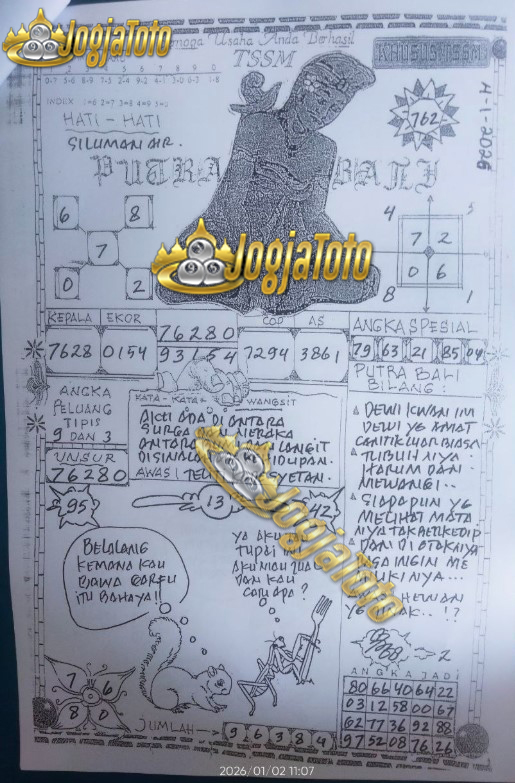 JogjaToto
Semoga Usaha Anda Berhasil
TSSM
KHUSUS TSSM
1 2 3 4 5 6 7 8 9 0
INDEX 1=6 2=7 3=8 4=9 5=0
HATI - HATI
SILUMAN AIR.
762
4-1-2026
PUTRA BALI
6 8
7
0 2
4 5
7 2
0 6
8 1
JogjaToto
KEPALA EKOR
7628 0154
76280
93154
COP AS
7294 3861
ANGKA SPESIAL
79 63 21 85 04
PUTRA BALI
BILANG :
ANGKA
PELUANG
TIPIS
9 DAN 3
UNSUR
76280
KATA - KATA WANGSIT
AKU ADA DI ANTARA
SURGA DAN NERAKA
LANGIT
AWAS
JogjaToto
DEWI KWAN IM
DEWI YG AMAT
CANTIK LUAR BIASA
TUBUH NYA
HARUM DAN
MEWANGI..
SIAPAPUN YG
MELIHAT MATA
NYA TAK BERKEDIP
DAN DI OTAKNYA
INGIN ME
HEWAN
..!?
95
13
42
BELALANG
KEMANA KAU
BAWA GARPU
ITU BAHAYA!!
TUPAI
AKU MAU
DAN KAU
CARI APA ?
2
7 6
8 0
JUMLAH
9 6 3 8 4
ANGKA JADI
80 66 40 64 22
03 12 58 00 67
62 77 36 92 88
97 52 08 76 26
2026/01/02 11:07